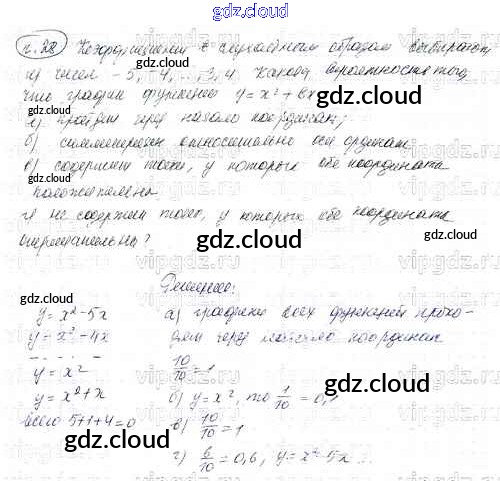 gdz.cloud
г.28 Коэффициент в случайным образом выбирают
из чисел -5, -4, ... 3, 4. Какова вероятность того,
что график функции y = x² + bx
а) пройдет через начало координат;
б) симметричен относительно оси ординат
в) содержит точки, у которых обе координаты
положительны
г) не содержит точек, у которых обе координаты
отрицательны?
Решение:
y = x² - 5x
y = x² - 4x
- - - - -
y = x²
y = x² + x
всего 5+1+4=0
а) графики всех функций прохо-
дят через начало координат
10/10 = 1
б) y = x², то 1/10 = 0,1
в) 10/10 = 1
г) 6/10 = 0,6, y = x² - 5x ...
gdz.cloud